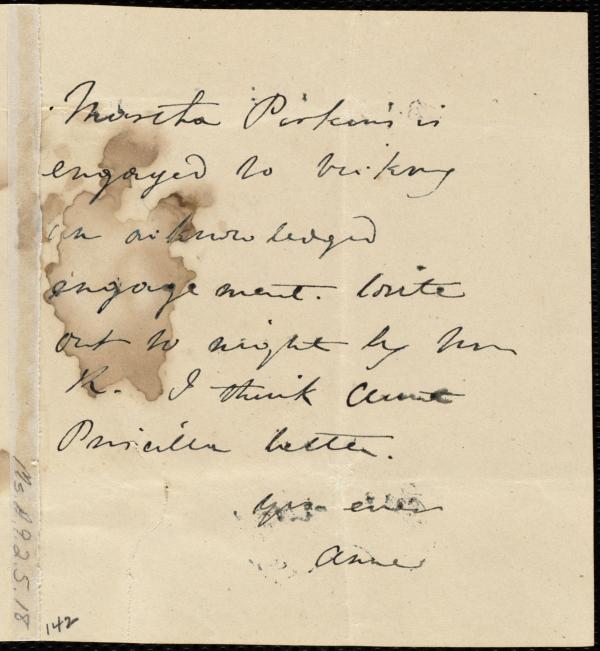 Martha Perkins is
engaged to
an acknowledged
engagement. Write
out to night by
R. I think Aunt
Priscilla better.
Yrs ever
Anne
142
Ms.A.9.2.5.18